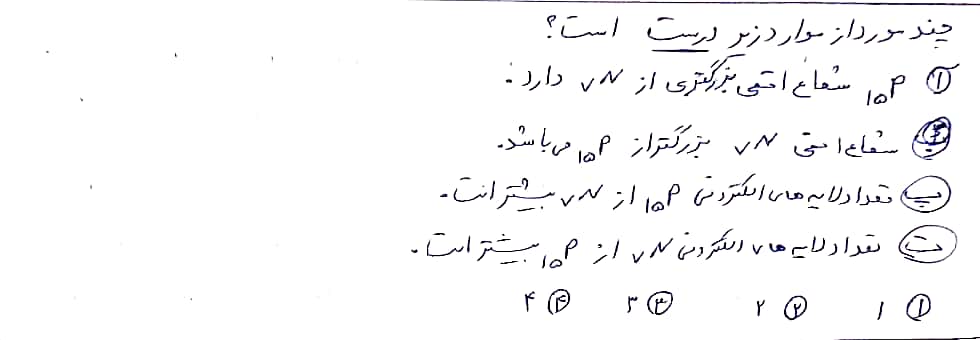 چند مورد از موارد زیر درست است؟
آ) ₁₅P شعاع اتمی بزرگتری از ₇N دارد.
ب) شعاع اتمی ₇N بزرگتر از ₁₅P می باشد.
پ) تعداد لایه های الکترونی ₁₅P از ₇N بیشتر است.
ت) تعداد لایه های الکترونی ₇N از ₁₅P بیشتر است.
۱) ۱ ۲) ۲ ۳) ۳ ۴) ۴